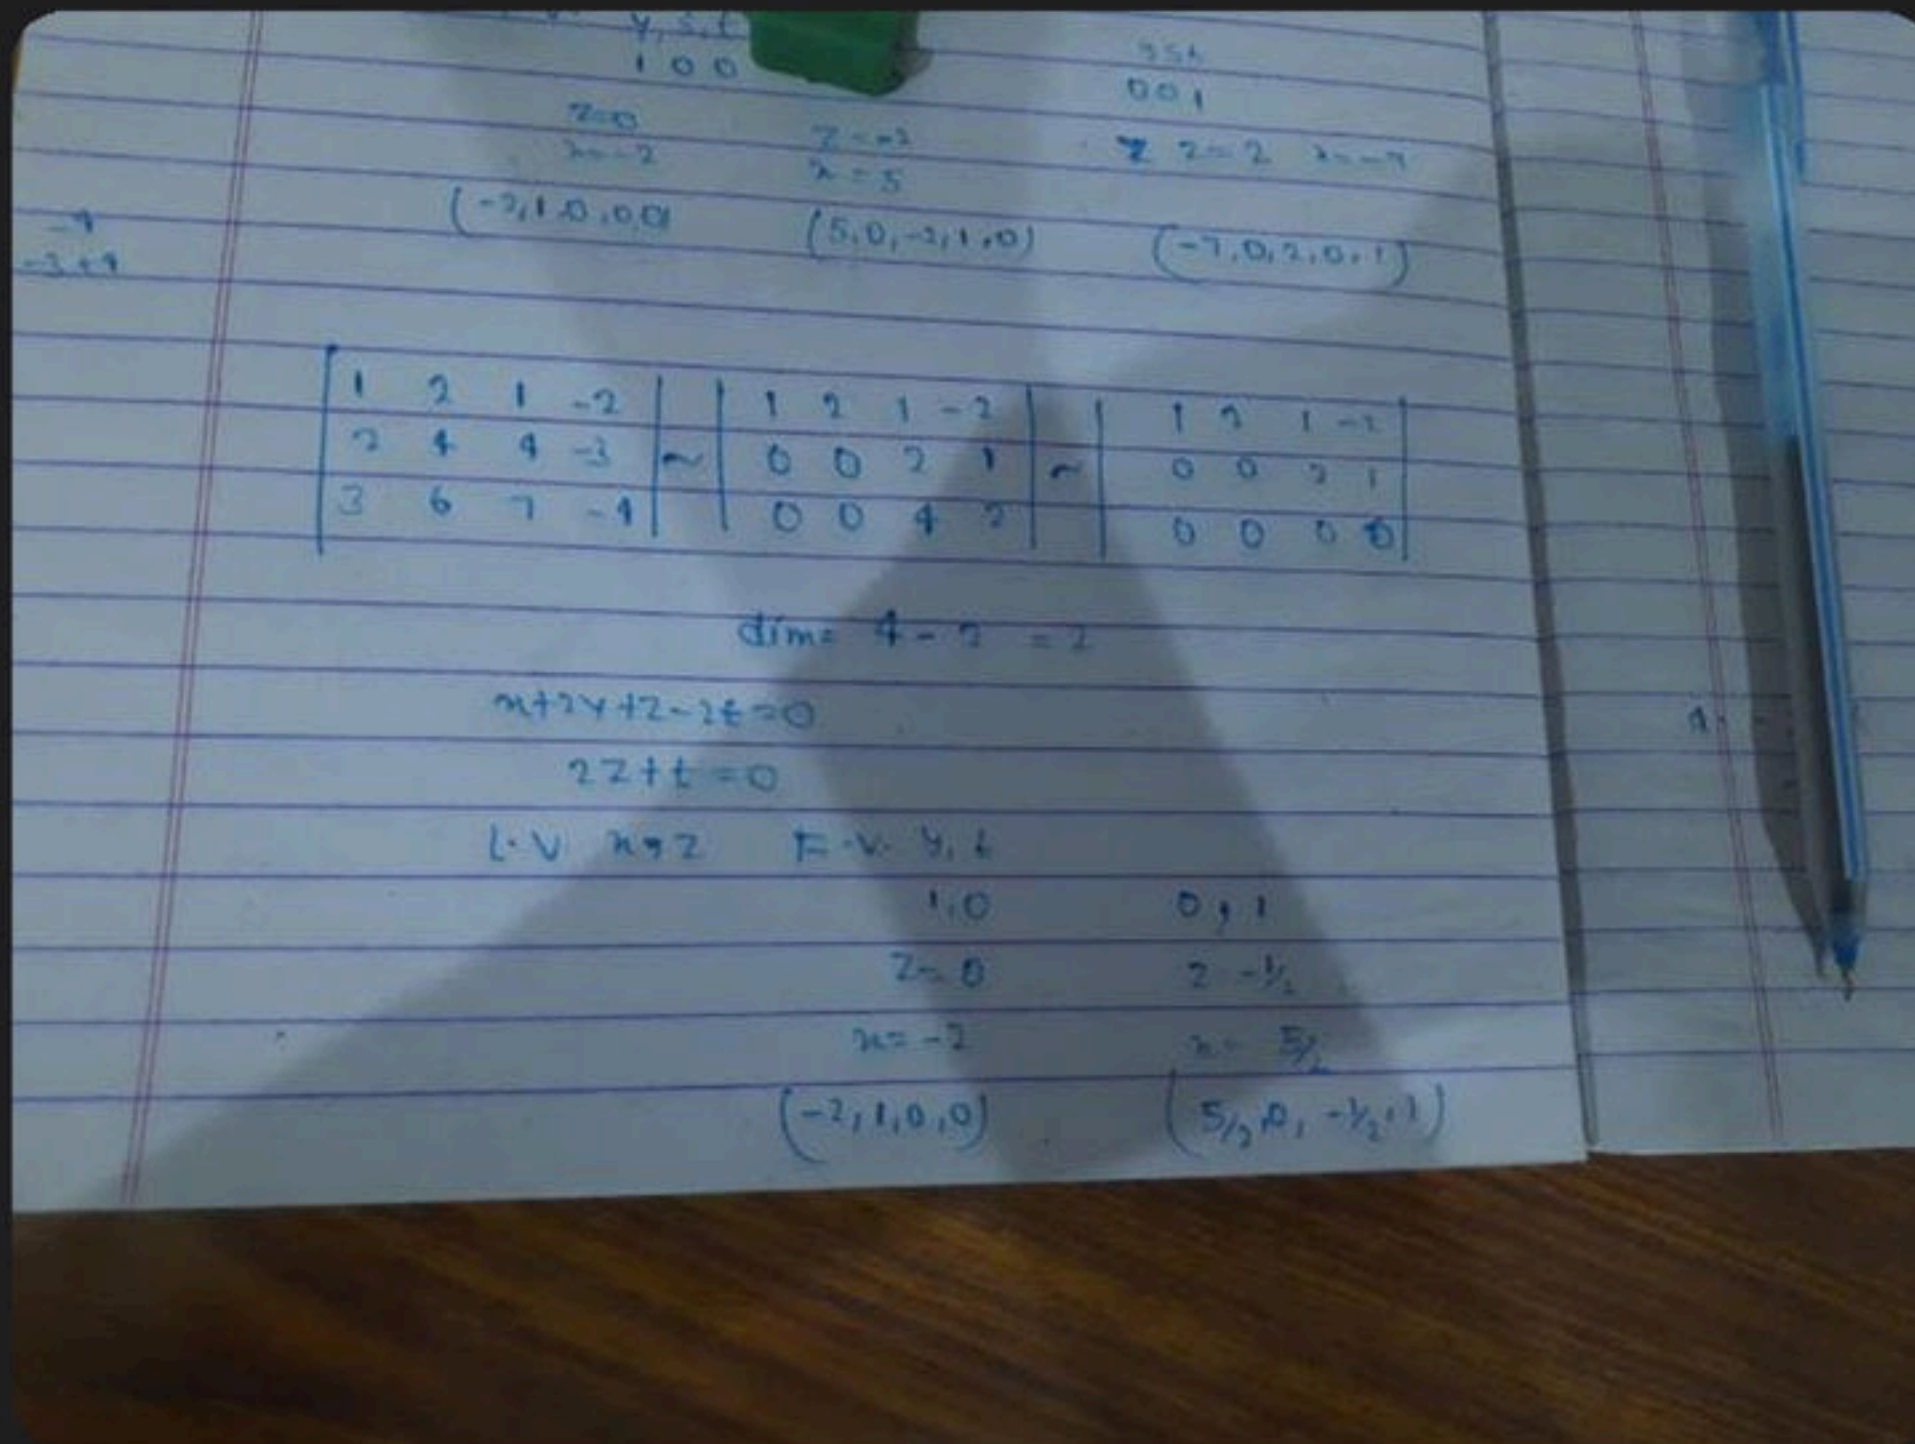 y, s, t
1 0 0
y s t
0 0 1
z=0
x=-2
z=-2
x=5
z=2 x=-7
(-2,1,0,0,0)
(5,0,-2,1,0)
(-7,0,2,0,1)
-4
-3+4
1 2 1 -2
2 4 4 -3
3 6 7 -4
~
1 2 1 -2
0 0 2 1
0 0 4 2
~
1 2 1 -2
0 0 2 1
0 0 0 0
dim= 4-2 =2
x+2y+z-2t=0
2z+t=0
L.V x,z F.V. y,t
1,0 0,1
z=0 z -1/2
x=-2 x= 5/2
(-2,1,0,0) (5/2,0,-1/2,1)